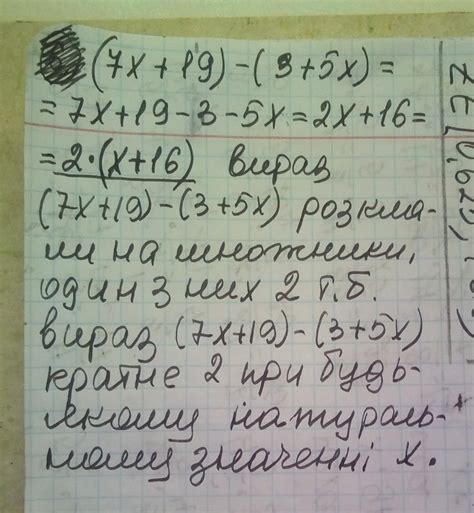 (7x+19)-(3+5x)=
=7x+19-3-5x=2x+16=
=2·(x+16) вираз
(7x+19)-(3+5x) розкла-
ли на множники,
один з них 2 т.б.
вираз (7x+19)-(3+5x)
кратне 2 при будь-
якому натураль-
ному значенні x.